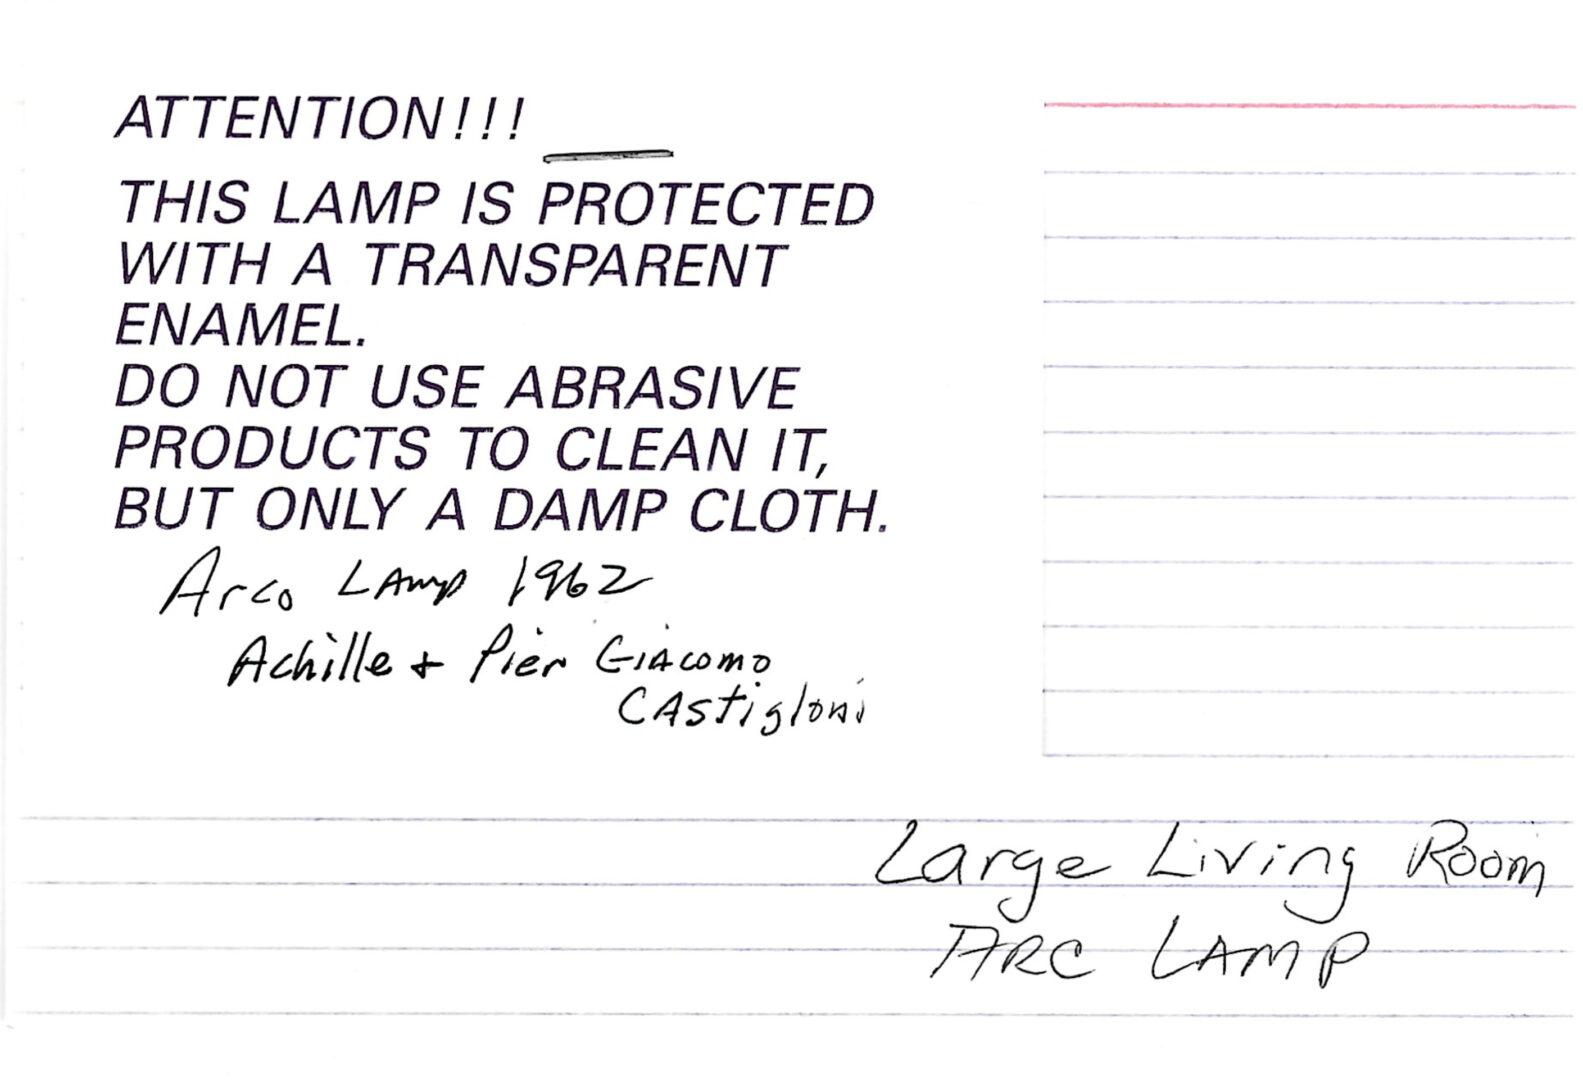 ATTENTION!!!
THIS LAMP IS PROTECTED
WITH A TRANSPARENT
ENAMEL.
DO NOT USE ABRASIVE
PRODUCTS TO CLEAN IT,
BUT ONLY A DAMP CLOTH.
Arco LAmp 1962
Achille + Pier GIAcomo
CAstigloni
Large Living Room
ARC LAMP